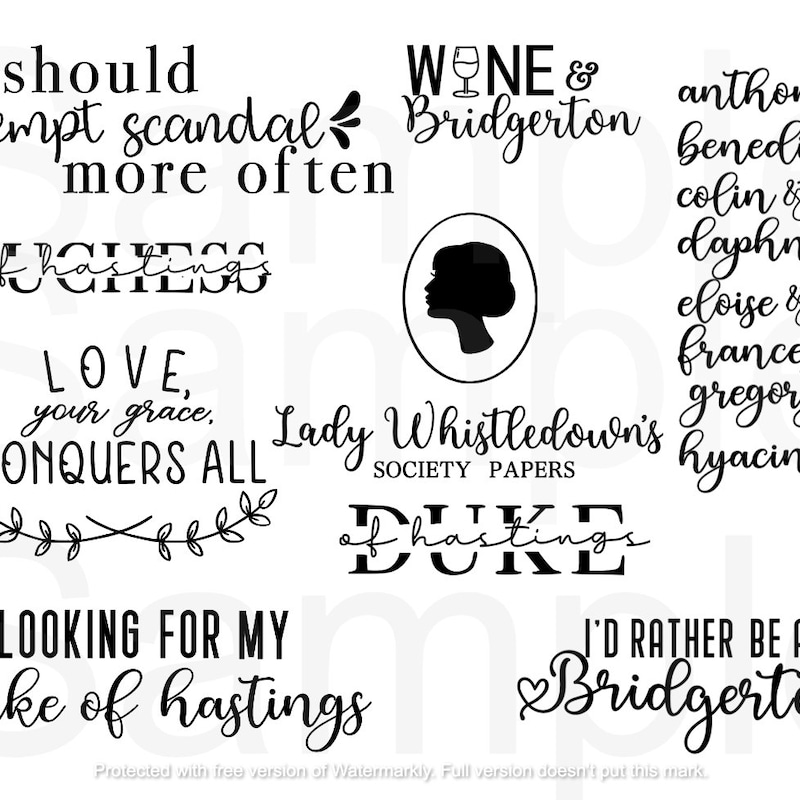 should
empt scandal
more often
WINE &
Bridgerton
UCHESS
of hastings
LOVE,
your grace,
ONQUERS ALL
Lady Whistledown's
SOCIETY PAPERS
DUKE
of hastings
anthon
benedi
colin &
daphn
eloise &
france
gregor
hyacin
LOOKING FOR MY
ke of hastings
I'D RATHER BE A
Bridgerto
Sample
Sample
Sample
Protected with free version of Watermarkly. Full version doesn't put this mark.